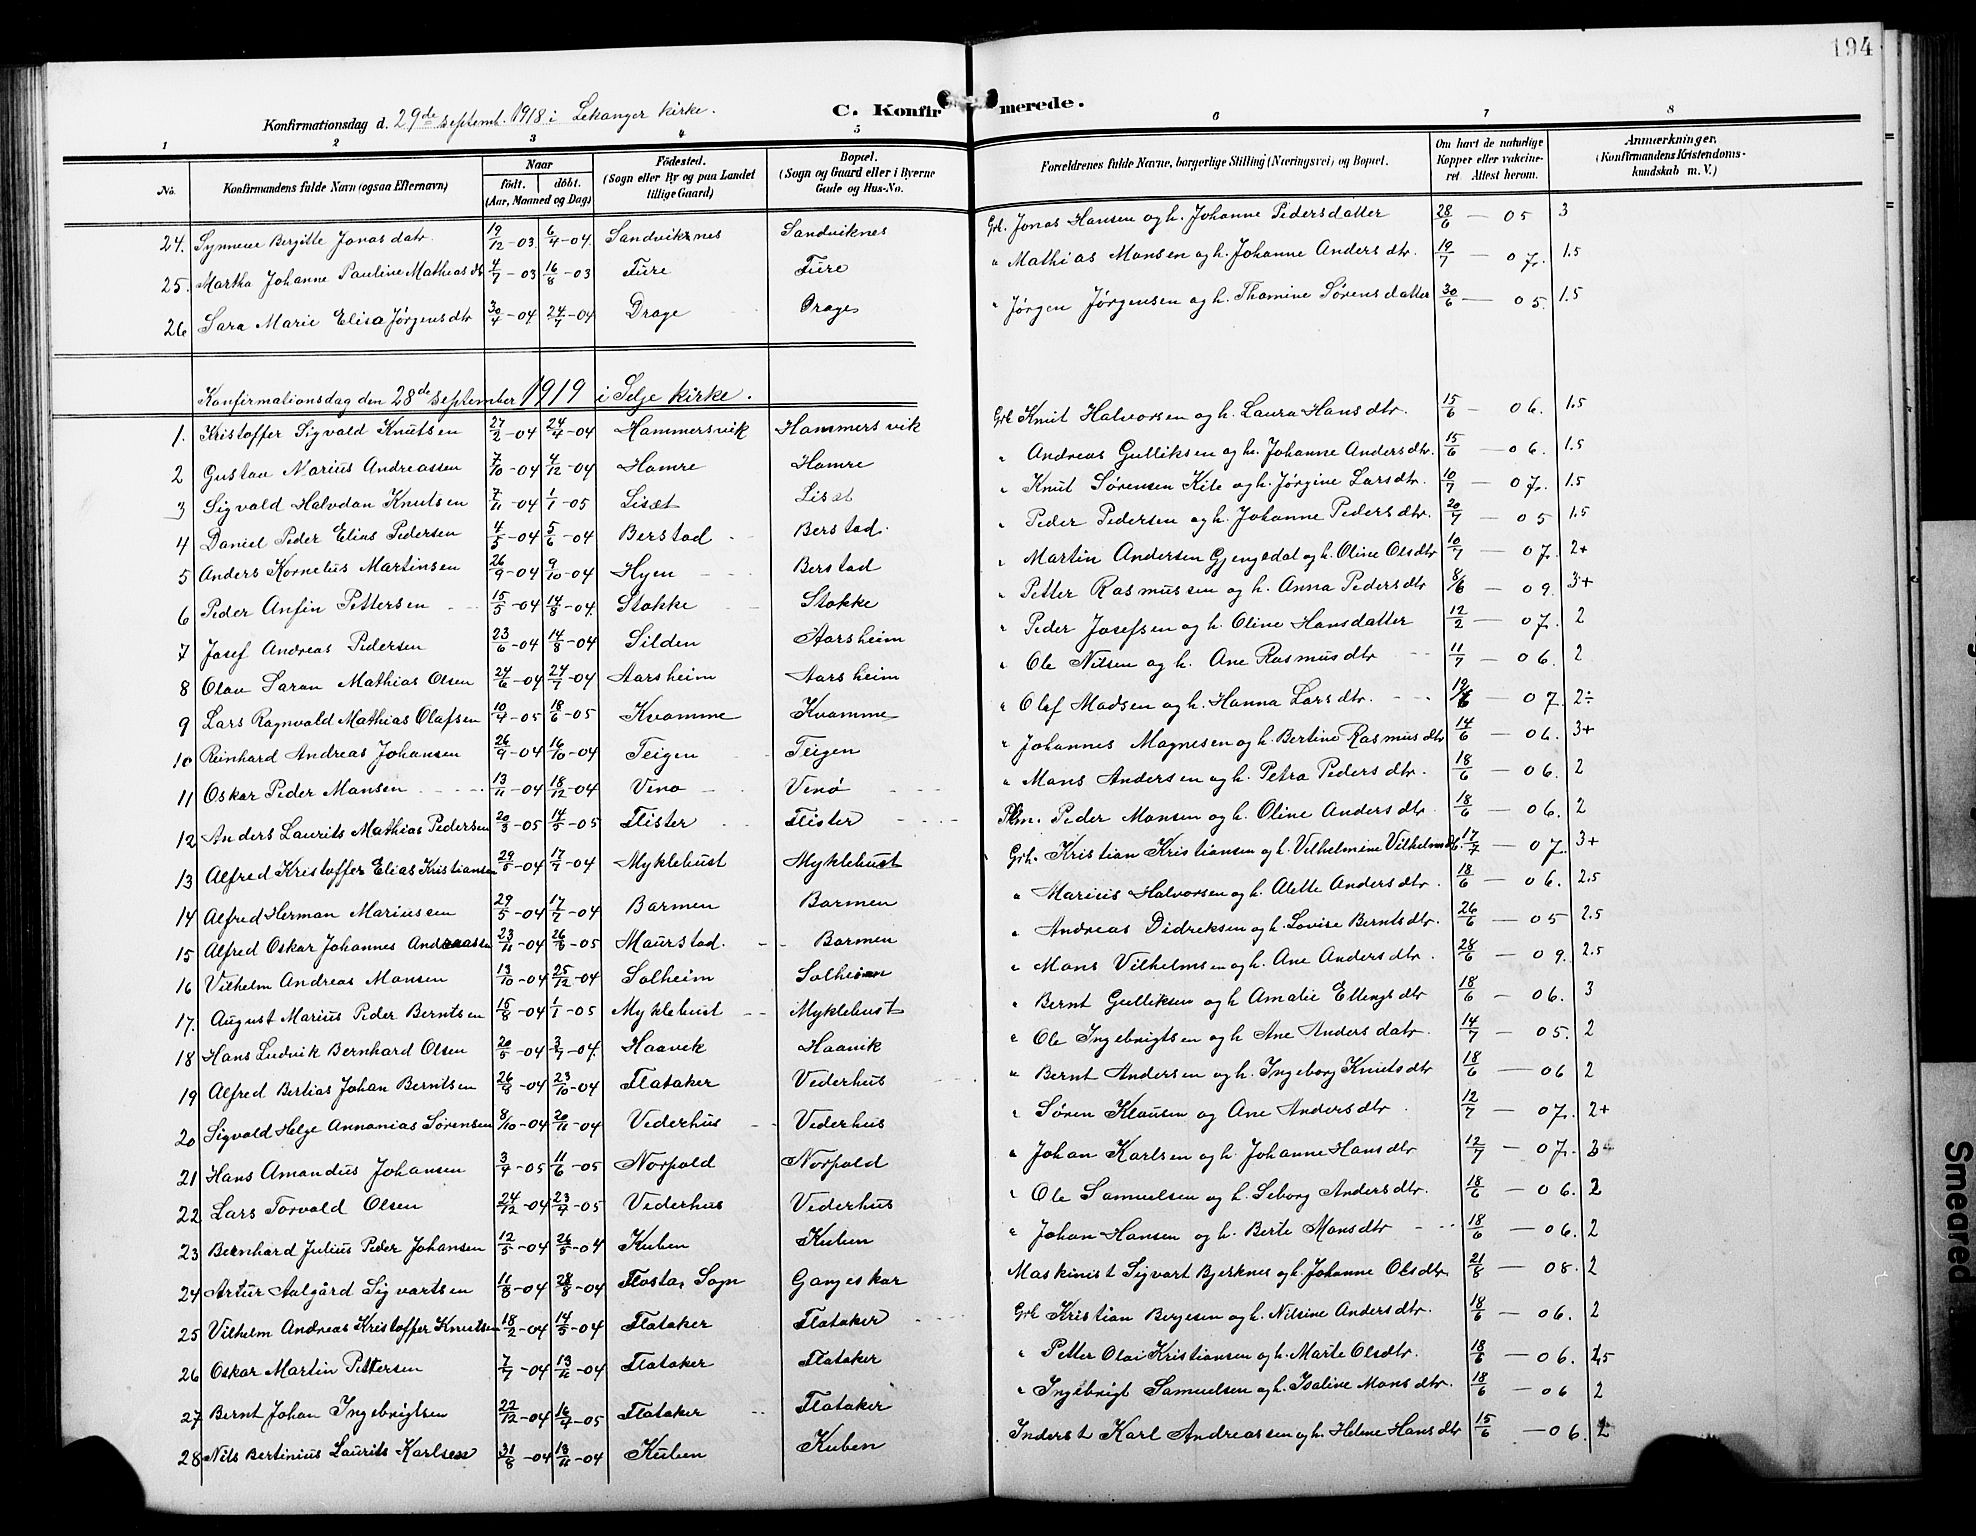 194
Konfirmationsdag d. 29de septemb. 1918 i Lekanger kirke.
C. Konfirmerede.
1 2 3 4 5 6 7 8
No. Konfirmandens fulde Navn (ogsaa Efternavn) Naar født. døbt. (Aar, Maaned og Dag) Fødested. (Sogn eller By og paa Landet tillige Gaard) Bopæl. (Sogn og Gaard eller i Byerne Gade og Hus-No. Forældrenes fulde Navne, borgerlige Stilling (Næringsvei) og Bopæl. Om havt de naturlige Kopper eller vakcineret Attest herom. Anmærkninger, (Konfirmandens Kristendomskundskab m. V.)
24. Synneve Bergitte Jonasdatr. 19/12-03 6/4-04. Sandviknes Sandviknes Grb. Jonas Hansen og h. Johanne Pedersdatter 28/6 — 05 3
25. Martha Johanne Pauline Mathiasdtr 4/7-03 16/8-03 Fure Fure " Mathias Monsen og h. Johanne Andersdtr. 19/7 — 07. 1.5
26 Sara Marie Elisa Jørgensdtr 30/4-04 24/7-04 Drage Drage " Jørgen Jørgensen og h. Thomine Sørensdatter 30/6 — 05. 1.5
Konfirmationsdag den 28de september 1919 i Selje kirke.
1. Kristoffer Sigvald Knutsen 27/2-04 24/4-04 Hammersvik Hammersvik Grb Knut Halvorsen og h. Laura Hansdtr. 15/6 — 06. 1.5
2 Gustav Marius Andreassen 7/10-04 4/12-04 Hamre Hamre " Andreas Gulliksen og h. Johanne Andersdtr. 15/6 — 06. 1.5
3 Sigvald Halvdan Knutsen 7/11-04 1/1-05 Lisæt Lisæt " Knut Sørensen Kile og h. Jørgine Larsdtr. 10/7 — 07. 1.5
4 Daniel Peder Elias Pedersen 4/5-04 5/6-04 Berstad Berstad. " Peder Pedersen og h. Johanne Pedersdtr. 20/7 — 05 1.5
5 Anders Kornelius Martinsen 26/9-04 9/10-04 Hyen Berstad " Martin Andersen Gjengedal og h. Oline Olsdtr 10/7 — 07. 2+
6 Peder Anfin Pettersen 15/5-04 14/8-04. Stokke Stokke " Petter Rasmussen og h. Anna Pedersdtr 8/6 — 09. 3+
7 Josef Andreas Pedersen 23/6-04 14/8-04 Silden Aarsheim " Peder Josefsen og h. Oline Hansdatter 12/2 — 07. 2
8 Olav Saran Mathias Olsen 24/6-04 24/7-04 Aarsheim Aarsheim " Ole Nilsen og h. Ane Rasmusdtr 11/7 — 06. 2
9 Lars Ragnvald Mathias Olafsen 10/4-05 18/6-05 Kvamme Kvamme " Olef Madsen og h. Hanna Larsdtr. 19/6 07. 2÷
10 Reinhard Andreas Johansen 26/9-04 16/10-04 Teigen Teigen " Johannes Magnesen og h. Bertine Rasmusdtr 14/6 — 06. 3+
11 Oskar Peder Monsen 13/11-04 18/12-04 Venø Venø " Mons Andersen og h. Petra Pedersdtr. 18/6 — 06. 2
12 Anders Laurits Mathias Pedersen 20/3-05 14/5-05 Flister Flister Plm. Peder Monsen og h. Oline Andersdtr. 18/6 — 06. 2
13 Alfred Kristoffer Elias Kristiansen 29/5-04 17/7-04 Myklebust Myklebust Grb. Kristian Kristiansen og h. Vilhelmine Vilhelmsdtr. 17/7 — 07. 3+
14 Alfred Herman Mariussen 29/5-04 17/7-04 Barmen Barmen " Marius Halvorsen og h. Alette Andersdtr. 18/6 — 06. 2.5
15 Alfred Oskar Johannes Andreassen 23/11-04 26/3-05 Maurstad. Barmen " Andreas Didreksen og h. Lovise Berntsdtr. 26/6 — 05 2.5
16 Vilhelm Andreas Monsen 13/10-04 25/12-04 Solheim Solheim " Mons Vilhelmsen og h. Ane Andersdtr. 28/6 — 09. 2.5
17. August Marius Peder Berntsen 15/8-04 1/1-05 Myklebust Myklebust " Bernt Gulliksen og h Amalie Ellingsdtr 18/6 — 06. 3
18 Hans Ludvik Bernhard Olsen 20/5-04 3/7-04. Haavik Haavik " Ole Ingebrigtsen og h Ane Andersdatr. 14/7 — 05. 2
19 Alfred Bertias Johan Berntsen 26/8-04 23/10-04 Flataker Vederhus " Bernt Andersen og h. Ingeborg Knutsdtr 18/6 — 06 2
20 Sigvald Helge Annanias Sørensen 8/10-04 20/11-04 Vederhus Vederhus " Søren Klausen og Ane Andersdtr. 12/7 — 07. 2+
21 Hans Amandus Johansen 3/4-05 11/6-05 Norpold Norpold " Johan Karlsen og h. Johanne Hansdtr 12/7 — 07. 3
22 Lars Torvald Olsen 24/12-04 23/4-05 Vederhus Vederhus " Ole Samuelsen og h. Seborg Andersdtr. 18/6 — 06. 2
23 Bernhard Julius Peder Johansen 12/5-04 26/5-04 Kuben Kuben " Johan Hansen og h. Berte Monsdtr 18/6 — 06. 2
24 Artur Aalgård Sigvartsen 11/8-04 28/8-04 Flosta, Sogn Gangeskar Maskinist Sigvart Bjerknes og h. Johanne Olsdtr. 21/8 — 08. 2
25 Vilhelm Andreas Kristoffer Knutsen 18/2-04 14/5-04 Flataker Flataker Grb Kristian Bergesen og h. Nilsine Andersdtr. 18/6 — 06. 2
26 Oskar Martin Pettersen 7/7-04 13/11-04 Flataker Flataker " Petter Olai Kristiansen og h. Marte Olsdtr. 18/6 — 06. 2,5
27 Bernt Johan Ingebrigtsen 22/12-04 16/4-05 Flataker Flataker " Ingebrigt Samuelsen og h. Isaline Monsdtr. 18/6 — 06 2
28 Nils Bertinius Laurits Karlsen 31/8-04 13/11-04 Kuben Kuben Inderst Karl Andreassen og h. Helene Hansdtr 15/6 — 06. 2
Smeared